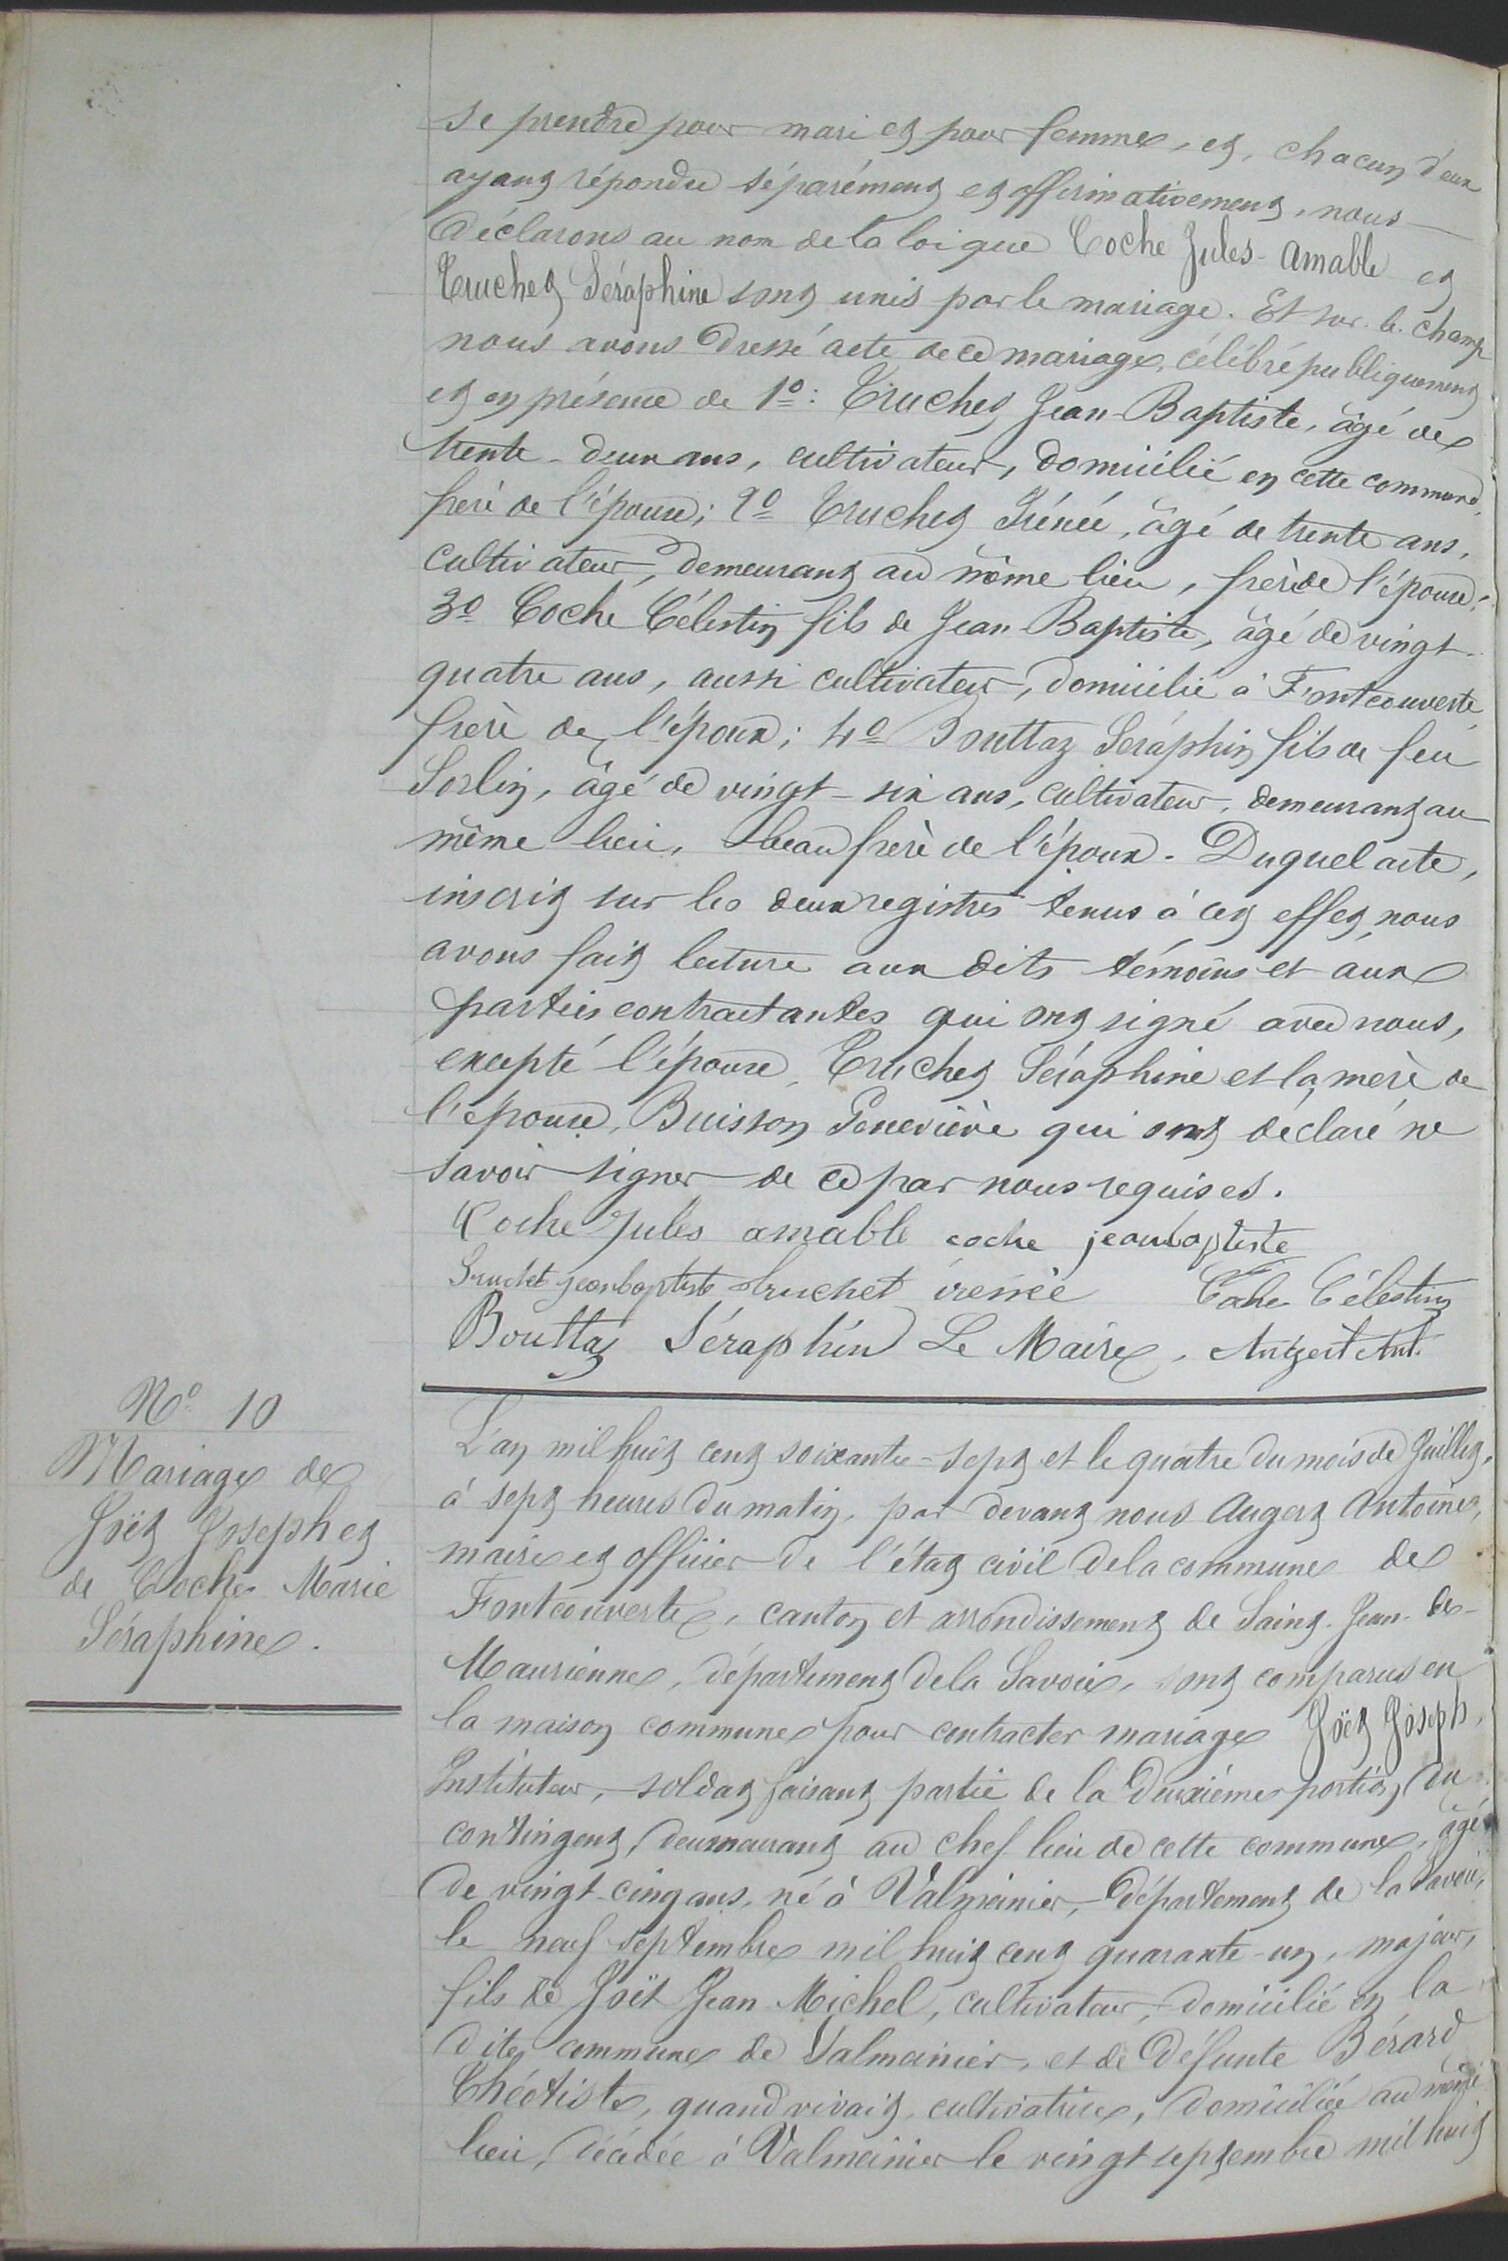 se prendre pour mari et pour femme, et, chacun d'eux
ayant répondu séparément et affirmativement, nous
Déclarons au nom de la loi que Coche Jules-Amable et
Truchet Séraphine sont unis par le mariage. Et sur le champ
nous avons dressé acte de ce mariage, célébré publiquement
et en présence de 1º: Truchet Jean-Baptiste, âgé de
trente-deux ans, cultivateur, domicilié en cette commune,
frère de l'épouse; 2º Truchet Irénée, âgé de trente ans,
cultivateur, demeurant au même lieu, frère de l'épouse;
3º Coche Célestin fils de Jean-Baptiste, âgé de vingt-
quatre ans, aussi cultivateur, domicilié à Fontcouverte,
frère de l'époux; 4º Bouttaz Séraphin fils de feu
Sorlin, âgé de vingt-six ans, cultivateur, demeurant au
même lieu, beau frère de l'époux. Duquel acte,
inscrit sur les deux registres tenus à cet effet, nous
avons fait lecture aux dits témoins et aux
parties contractantes qui ont signé avec nous,
excepté l'épouse, Truchet Séraphine et la mère de
l'épouse, Buisson Geneviève qui ont déclaré ne
savoir signer de ce par nous requises.
Coche Jules amable coche jeanbaptiste
Truchet jeanbaptiste truchet irénée Coche Célestin
Bouttaz Séraphin Le Maire, Augert Ant.
Nº 10
Mariage de
Joët Joseph et
de Coche Marie
Séraphine.
L'an mil huit cent soixante-sept et le quatre du mois de Juillet,
à sept heures du matin, par devant nous Augert Antoine,
maire et officier de l'état civil de la commune de
Fontcouverte, canton et arrondissement de Saint-Jean-de-
Maurienne, département de la Savoie, sont comparus en
la maison commune pour contracter mariage Joët Joseph,
Instituteur, soldat faisant partie de la deuxième portion du
contingent, deumeurant au chef lieu de cette commune, âgé
de vingt-cinq ans, né à Valmeinier, département de la Savoie,
le neuf septembre mil huit cent quarante-un, majeur,
fils de Joët Jean Michel, cultivateur, domicilié en la
dite commune de Valmeinier, et de défunte Bérard
Théotiste, quand vivait, cultivatrice, domiciliée au même
lieu, décédée à Valmeinier le vingt septembre mil huit